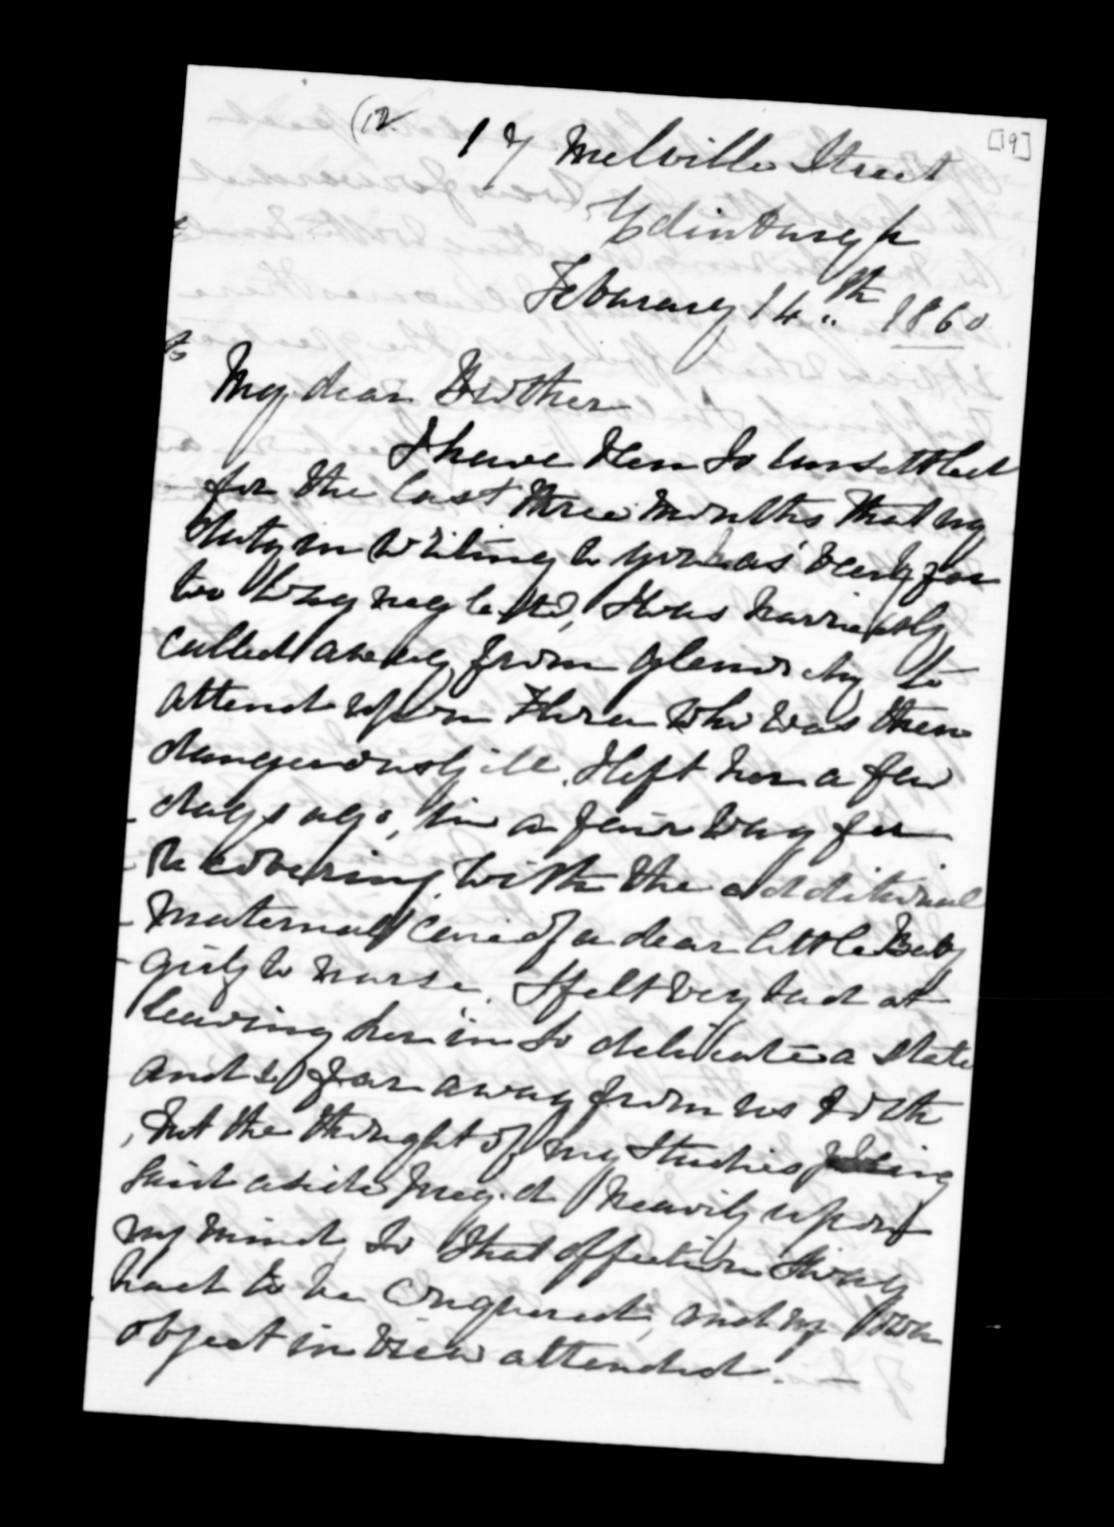 (12.
[19]
17 Melville Street
Edinburgh
February 14..th 1860
My dear Brother
I have been so unsettled
for the last three months that my
duty in writing to you has been far
too long neglected, I was hurriedly
called away from Glenorchy to
attend upon Flora who was then
dangerously ill. I left her a few
days ago, in a fair way for
Recovering with the additional
maternal care of a dear little Baby
girl, to nurse. I felt very bad at
leaving her in so delicate a state
and so far away from us both
, but the thought of my Studies being
laid aside preyed heavily upon
my mind, so that affection
had to be conquered, and my own
object in view attended. —